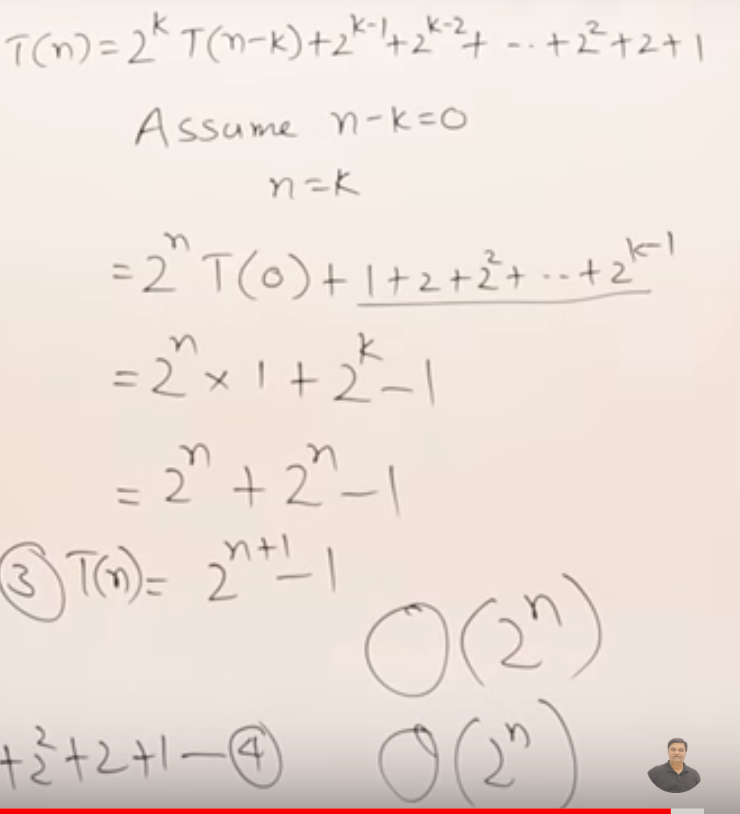 T(n) = 2^k T(n-k) + 2^{k-1} + 2^{k-2} + -- + 2^2 + 2 + 1
Assume n-k=0
n=k
= 2^n T(0) + 1+2+2^2+ -- +2^{k-1}
= 2^n × 1 + 2^k - 1
= 2^n + 2^n - 1
③ T(n) = 2^{n+1} - 1
O(2^n)
+2^2+2+1 — ④ O(2^n)